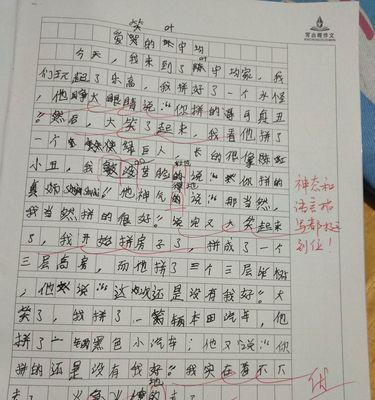 笑 叶
爱哭的陈中均
叶
今天，我来到了陈中均家，我
们玩起了乐高，我拼好了一个水怪
，他睁大眼睛说“你拼的哥可真丑
”然后，大笑了起来，我看他拼了
一个绿巨人，长的很像
小丑，我说“你拼的
真好”他神气的说“那当然，
我当然拼的很好”说完又大笑起来
了，我开始拼房子了，拼成了一个
三层高房，而他拼了三个三层
，他说“这还是没有我好”大
笑了，我拼了一辆本田汽车，他
拼了一辆黑色小汽车；他又说“你
拼的还是没有我好”我实在看不下
地
神态和
语言描
写都
到位！
优